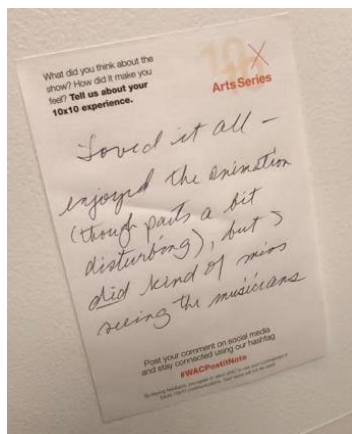 What did you think about the
show? How did it make you
feel? Tell us about your
10x10 experience.
10
x
10
Arts Series
Loved it all -
enjoyed the animation
(though parts a bit
disturbing), but I
did kind of miss
seeing the musicians
Post your comment on social media
and stay connected using our hashtag
#WACPostitNote